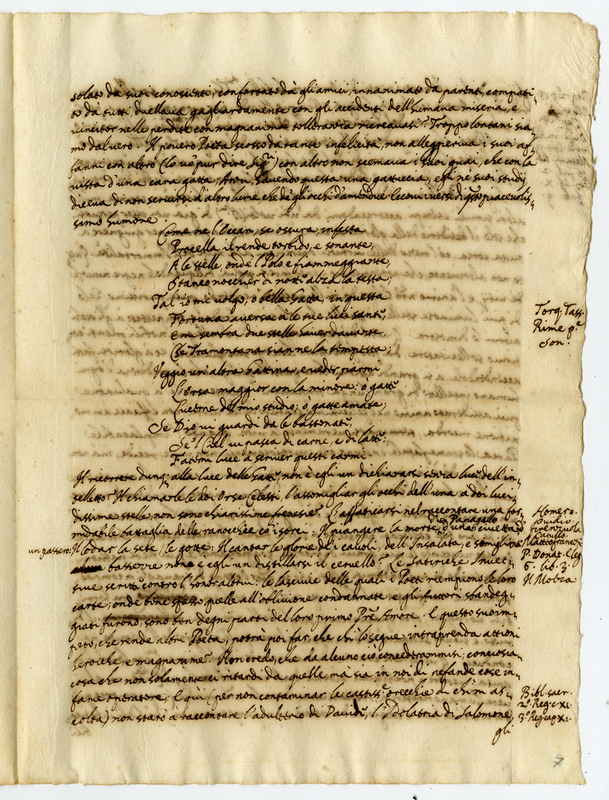 solato da suoi conoscenti, confortato da gli amici, innanimato da parenti, compati-
to da tutti duellaua gagliardamente con gli accidenti dell'humana miseria, e
uincitor nelle perdite con magnanima tolleranza ricreauasi. Troppo lontani sia-
mo dal uero. Il pouero Poeta scosso da tante infelicità, non alleggeriua i suoi af-
fanni con altro (lo uò pur dire) con altro non scemaua i suoi guai, che con la
uista d'una cara gatta. Anzi, hauendo questa una gattuccia, egli ne' suoi studij
diceua di non seruirsi d'altro lume, che de gli occhi d'amendue. Eccoui i uersi di
simo humore.
Come ne l'Ocean, se oscura, infesta
Procella il rende torbido, e sonante,
A le stelle, onde l'Polo è fiammeggiante,
Stanco nocchier di notte alza la testa;
Tal'io mi uolgo, ò bella Gatta, in questa
Fortuna auersa à le tue luci sante,
E mi sembra due stelle hauer dauante,
Che Tramontana sian ne la tempesta;
Veggio un'altra Gattina, e ueder parmi
L'orsa maggior con la minore: ò gatte
Lucerne del mio studio; ò gatte amate;
Se Dio ui guardi da le bastonate,
Se 'l Ciel ui pasca di carne, e di latte
Fatemi luce à scriuer questi carmi.
Il ricorrere dunque alla luce delle Gatte, non è egli un dichiararsi senza luce dell'in-
telletto? Il chiamarle le doi Orse Celesti, l'assomigliar gli occhi dell'una a doi lucen-
dissime stelle non sono chiarissime frenesie? L'affaticarsi nel raccontare una for-
midabile battaglia delle ranocchie co' sorci. Il piangere la morte d'un Papagallo d'una ciuetta
un passero. Il lodar la sete, le gotte. Il cantar le glorie de' i cauoli, dell'Insalata, e simiglianti
bassezze non è egli un distillarsi il ceruello? Le Satiriche Inuet-
tiue scritte contro l'honor altrui: le lasciuie delle quali i Poeti riempiono le loro
carte; onde bene spesso quelle all'obliuione condannate, e gli auttori sbandeg-
giati furono, sono ben degni parti del loro primo Padre Amore. E questo suo im-
peto, che rende altrui Poeta, potrà poi far, che chi lo segue intraprenda attioni
heroiche, e magnanime? Non credo, che da alcuno ciò concederammisi; conciosia
cosa che non solamente ci ritardi da quelle, ma sia in noi di nefande cose in-
fame operatore. E quì (per non contaminar le castissime orecchie di chi m'as-
colta) non starò a raccontare l'adulterio di Dauide, l'Idolatria di Salomone,
gli
Torq. Tass.
Rime p.e
Son.
Homero.
Ouidio
Firenzuola
Catullo
P. Donat. Eleg.
6. lib. 3.
Il Molza
Bibl. sacr.
2.o Reg. c. XI.
3.o Reg. cap. XI.
7